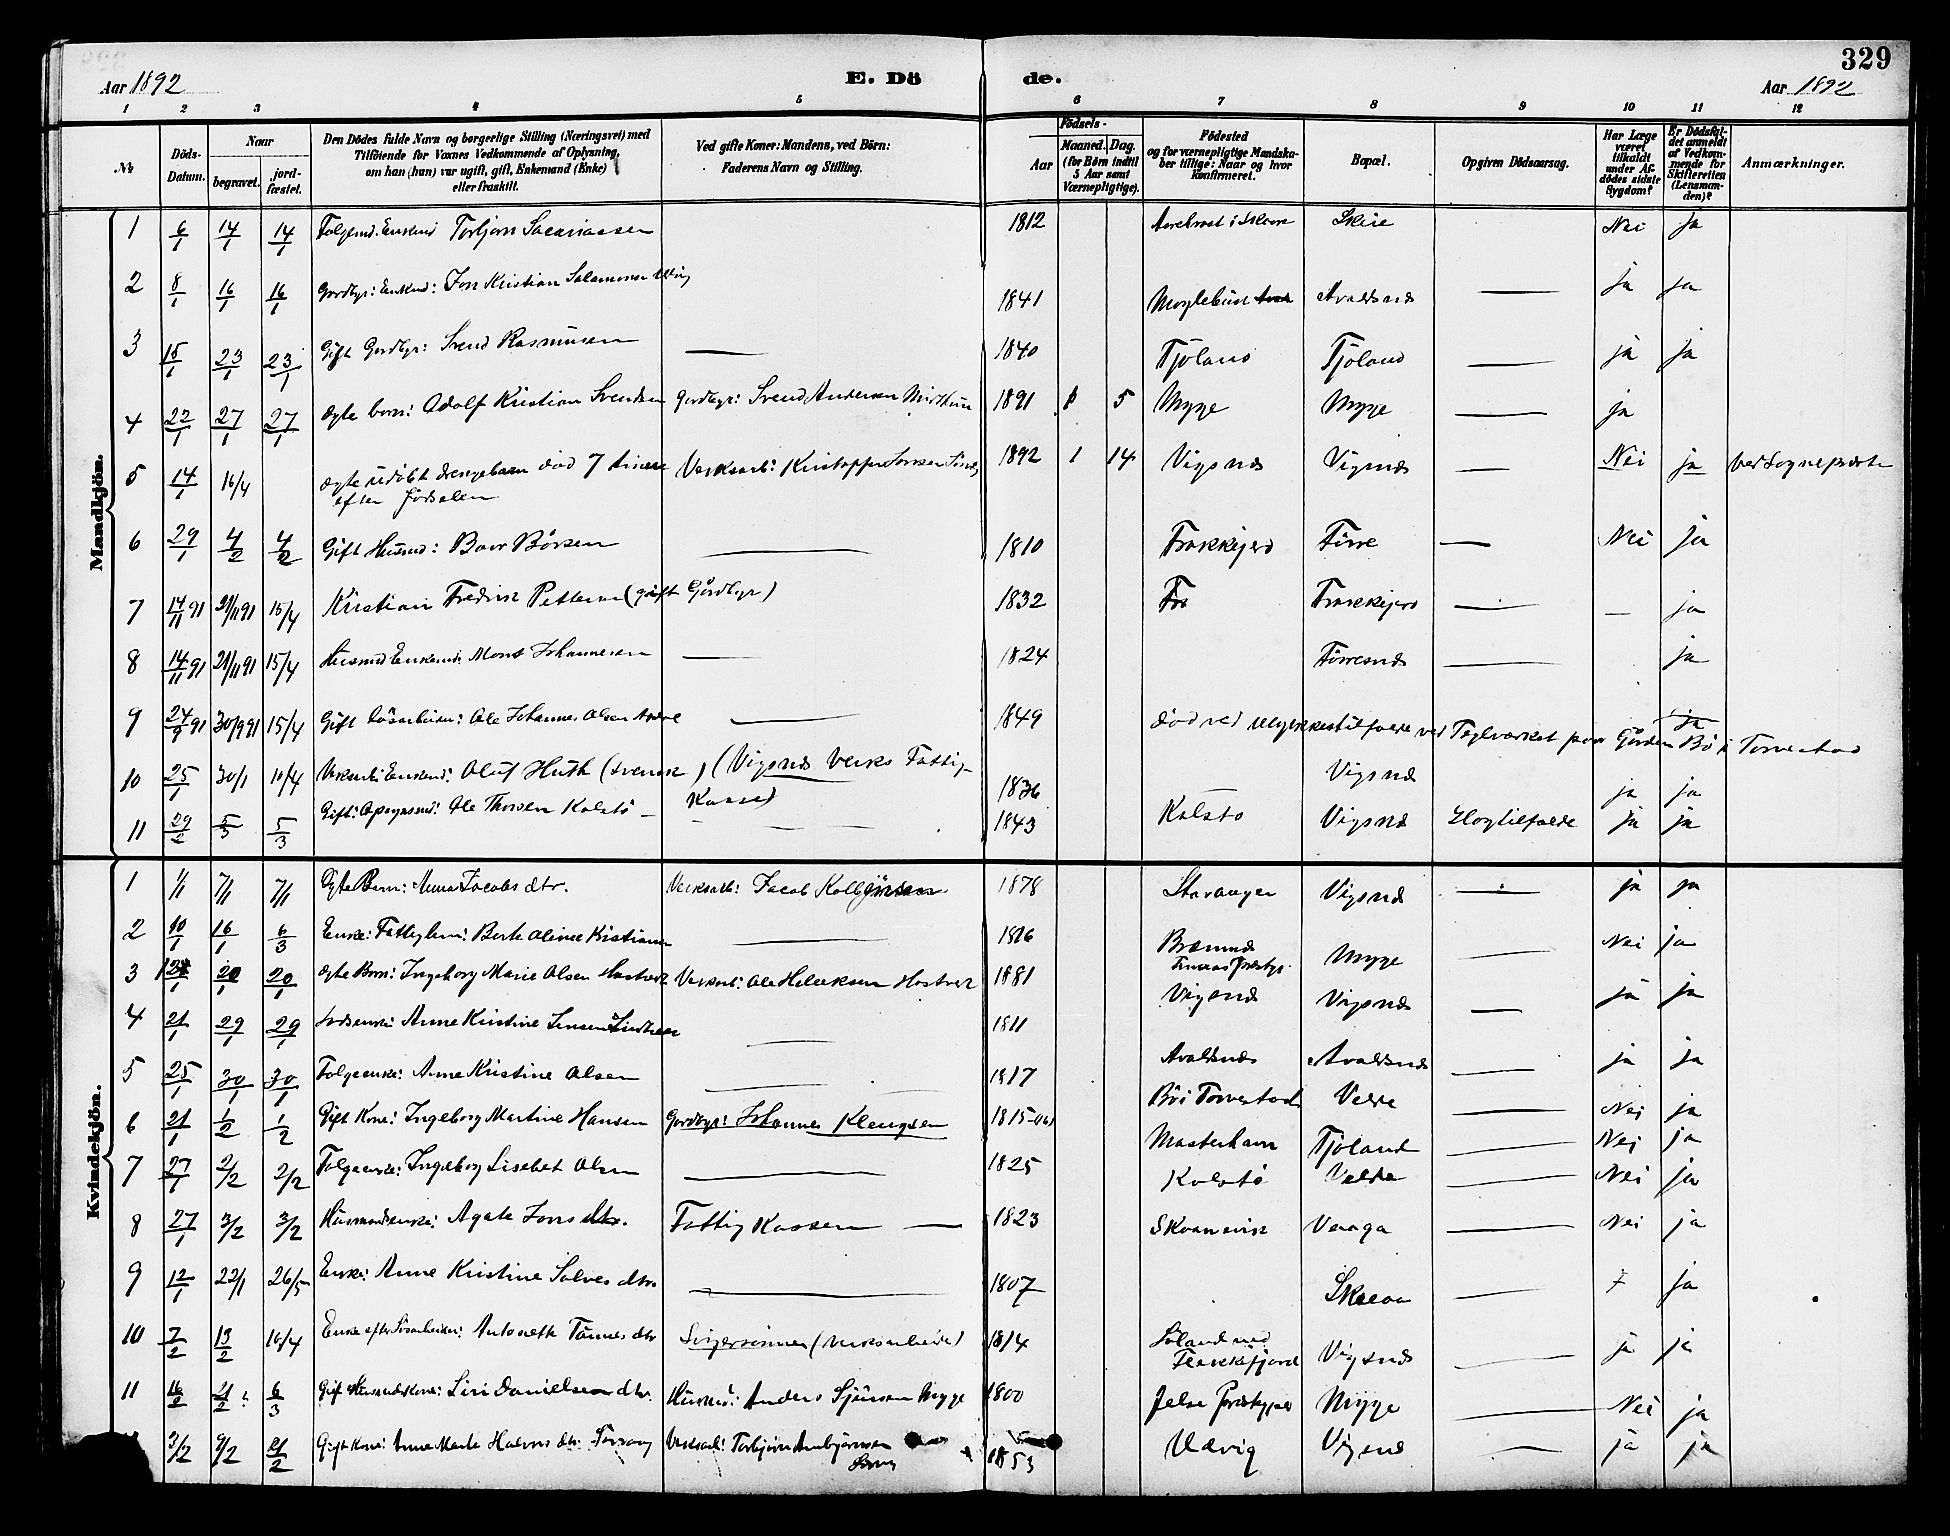 329
Aar 1892
E. Dö de.
Aar 1892
1 2 3 4 5 6 7 8 9 10 11 12
№
Döds-Datum.
Naar begravet. jordfæstet.
Den Dödes fulde Navn og borgerlige Stilling (Næringsvei) med
Tilföiende for Voxnes Vedkommende af Oplysning,
om han (hun) var ugift, gift, Enkemand (Enke)
eller fraskilt.
Ved gifte Koner: Mandens, ved Börn:
Faderens Navn og Stilling.
Födsels-
Aar
Maaned. Dag.
(for Börn indtil
5 Aar samt
Værnepligtige).
Födested
og for værnepligtige Mandska-
ber tillige: Naar og hvor
Konfirmeret.
Bopæl.
Opgiven Dödsaarsag.
Har Læge
været
tilkaldt
under Af-
dödes sidste
Sygdom?
Er Dödsfal-
det anmeldt
af Vedkom-
mende for
Skifteretten
(Lensman-
den)?
Anmærkninger.
Mandkjön.
1 6/1 14/1 14/1 Enkmd Torbjørn 1812 Skeie Nei ja
2 8/1 16/1 16/1 Gordbgr: Enkmd: Jon Kristian Salamonsen 1841 Avaldsnæs — ja ja
3 15/1 23/1 23/1 Gift Gordbgr: Svend Rasmusen — 1840 Tjøland Tjøland — ja ja
4 22/1 27/1 27/1 ægte barn: Adolf Kristian Svendsen Gordbgr: Svend Andersen 1891 5 Myge Myge — ja
5 14/1 16/4 ægte udøbt drengebarn død 7 timer efter Fødselen Verksarb: Kristoffer 1892 1 14 Vigsnæs Vigsnæs — Nei ja ved Sognepræsten
6 29/1 4/2 4/2 Gift Husmd: Baor Børsen — 1810 Frakkjerd Førre — Nei ja
7 14/11 91 21/11 91 15/4 Kristian Fredrik Pettersen (gift Gårdbgr) 1832 — — ja
8 14/11 91 21/11 91 15/4 Husmd Enkemd: Mons Johannesen — 1824 Førresnæs — ja
9 24/9 91 30/9 91 15/4 Gift Løsarbeider: Ole Johannes Olsen — 1849 død ved ulykkestilfælde ved Teglværket paa Gården Bø i Torvestad ja
10 25/1 30/1 10/4 Verksarb: Enkemd: Oluf Huth (svensk) (Vigsnæs Verks Fattigkasse) 1836 Vigsnæs ja ja
11 29/2 5/3 5/3 Gift: Ole Thorsen Kolstø — 1843 Kolstø Vigsnæs ja ja
Kvindekjön.
1 1/1 7/1 7/1 Ægte Barn: Anna Jacobs dtr. Verksarb: Jacob 1878 Stavanger Vigsnæs — ja ja
2 10/1 16/1 6/3 Enke: Fattiglem: Berte Oline Kristians — 1816 Myge — Nei ja
3 20/1 20/1 ægte Barn: Ingeborg Marie Olsen Verksarb: Ole 1881 Vigsnæs Vigsnæs — ja ja
4 21/1 29/1 29/1 Anne Kristine Jensen — 1811 Avaldsnæs Avaldsnæs — ja ja
5 25/1 30/1 30/1 Folgeenke: Anne Kristine Olsen — 1817 Bø i Torvestad Velde — Nei ja
6 21/1 1/2 1/2 Gift Kone: Ingeborg Martine Hansen Gordbgr: Johannes Klengsen 1815 Mosterhavn Tjøland — Nei ja
7 27/1 2/2 2/2 Folgeenke: Ingeborg Lisebet Olsen — 1825 Kolstø Velde — Nei ja
8 27/1 3/2 3/2 Husmandsenke: Agate Jons dtr. Fattig Kassen — 1823 Skaanevik Veaga — Nei ja
9 12/1 22/1 26/5 Enke: Anne Kristine Salves dtr — 1807 — ja
10 7/2 13/2 10/4 Enke efter Løsarbeider: Antonette Tønnes dtr Svigersønnen (verksarbeider) 1814 Vigsnæs — ja ja
11 16/2 21/2 6/3 Gift Husmdskone: Siri Danielsen dtr. Husmd: Anders Sjursen Myge 1800 Jelse Præstegjeld Myge — Nei ja
3/2 9/2 21/2 Gift Kone: Anne Marte Verksarb: Torbjørn Anbjørnsen 1853 Udvig Vigsnæs — ja ja